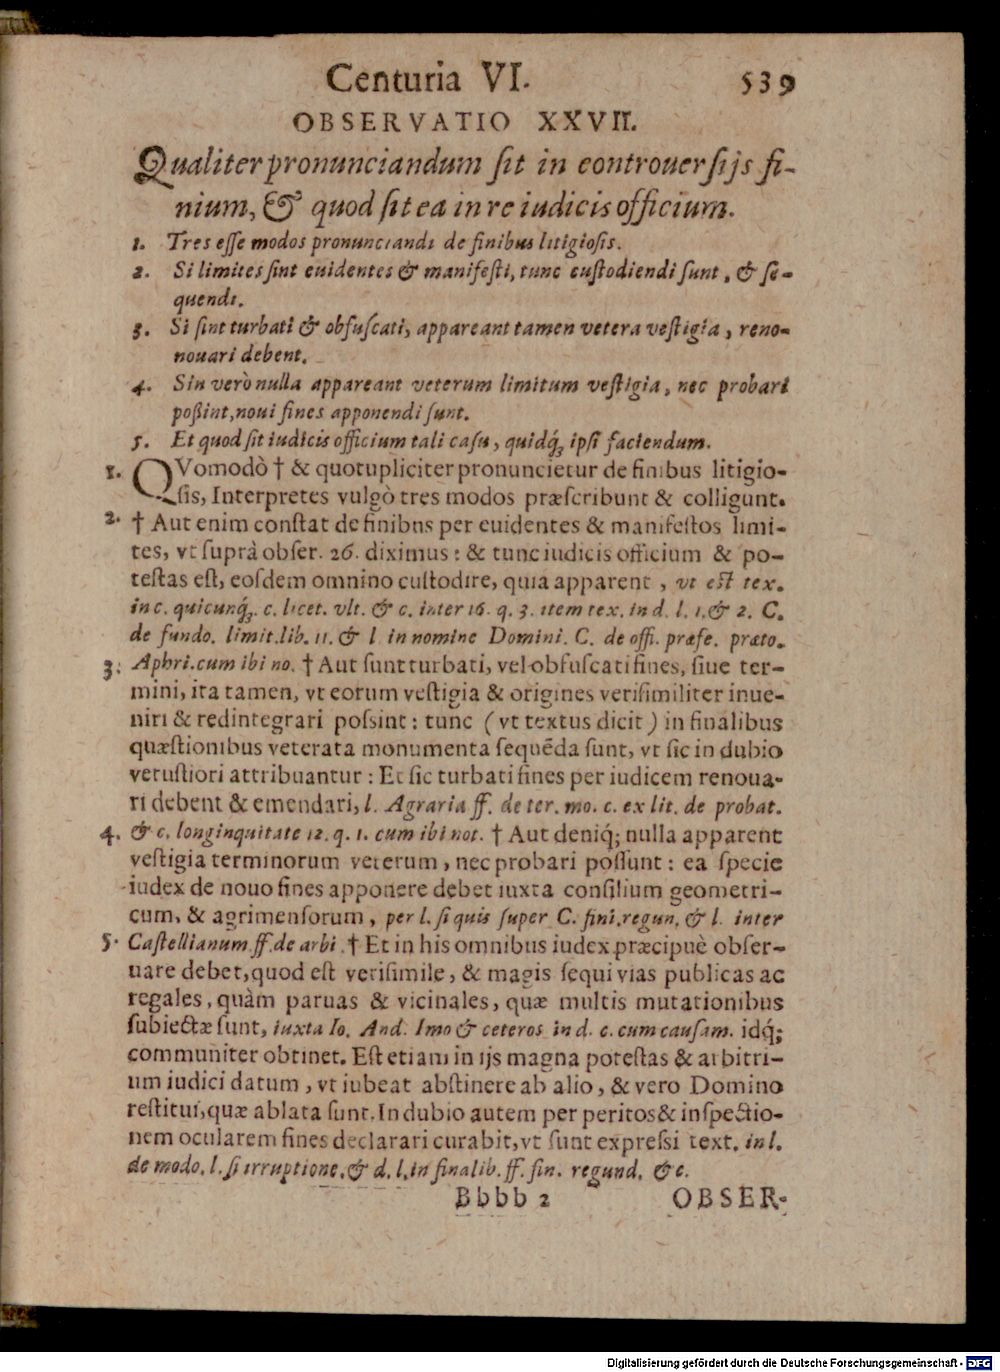 Centuria VI. 539
OBSERVATIO XXVII.
Qualiter pronunciandum ſit in controuerſijs fi-
nium, & quod ſit ea in re iudicis officium.
1. Tres eſſe modos pronunciandi de finibus litigioſis.
2. Si limites ſint euidentes & manifeſti, tunc cuſtodiendi ſunt, & ſe-
quendi.
3. Si ſint turbati & obfuſcati, appareant tamen vetera veſtigia, reno-
nouari debent.
4. Sin verò nulla appareant veterum limitum veſtigia, nec probari
poßint, noui fines apponendi ſunt.
5. Et quod ſit iudicis officium tali caſu, quidq́ꝫ ipſi faciendum.
1. QVomodò † & quotupliciter pronuncietur de finibus litigio-
ſis, Interpretes vulgò tres modos præſcribunt & colligunt.
2. † Aut enim conſtat de finibns per euidentes & manifeſtos limi-
tes, vt ſuprà obſer. 26. diximus: & tunc iudicis officium & po-
teſtas eſt, eoſdem omnino cuſtodire, quia apparent, vt eſt tex.
in c. quicunq́ꝫ. c. licet. vlt. & c. inter 16. q. 3. item tex. in d. l. 1. & 2. C.
de fundo. limit. lib. 11. & l. in nomine Domini. C. de offi. præfe. præto.
3. Aphri. cum ibi no. † Aut ſunt turbati, vel obfuſcati fines, ſiue ter-
mini, ita tamen, vt eorum veſtigia & origines veriſimiliter inue-
niri & redintegrari poſsint: tunc (vt textus dicit) in finalibus
quæſtionibus veterata monumenta ſequẽda ſunt, vt ſic in dubio
vetuſtiori attribuantur: Et ſic turbati fines per iudicem renoua-
ri debent & emendari, l. Agraria ff. de ter. mo. c. ex lit. de probat.
4. & c. longinquitate 12. q. 1. cum ibi not. † Aut deniq́; nulla apparent
veſtigia terminorum veterum, nec probari poſſunt: ea ſpecie
iudex de nouo fines apponere debet iuxta conſilium geometri-
cum, & agrimenſorum, per l. ſi quis ſuper C. fini. regun. & l. inter
5. Caſtellianum ff. de arbi. † Et in his omnibus iudex præcipuè obſer-
uare debet, quod eſt veriſimile, & magis ſequi vias publicas ac
regales, quàm paruas & vicinales, quæ multis mutationibus
ſubiectæ ſunt, iuxta Io. And. Imo & ceteros in d. c. cum cauſam. idq́;
communiter obtinet. Eſt etiam in ijs magna poteſtas & arbitri-
um iudici datum, vt iubeat abſtinere ab alio, & vero Domino
reſtitui, quæ ablata ſunt. In dubio autem per peritos & inſpectio-
nem ocularem fines declarari curabit, vt ſunt expreſsi text. in l.
de modo. l. ſi irruptione. & d. l. in finalib. ff. fin. regund. &c.
Bbbb 2 OBSER-
Digitalisierung gefördert durch die Deutsche Forschungsgemeinschaft - DFG